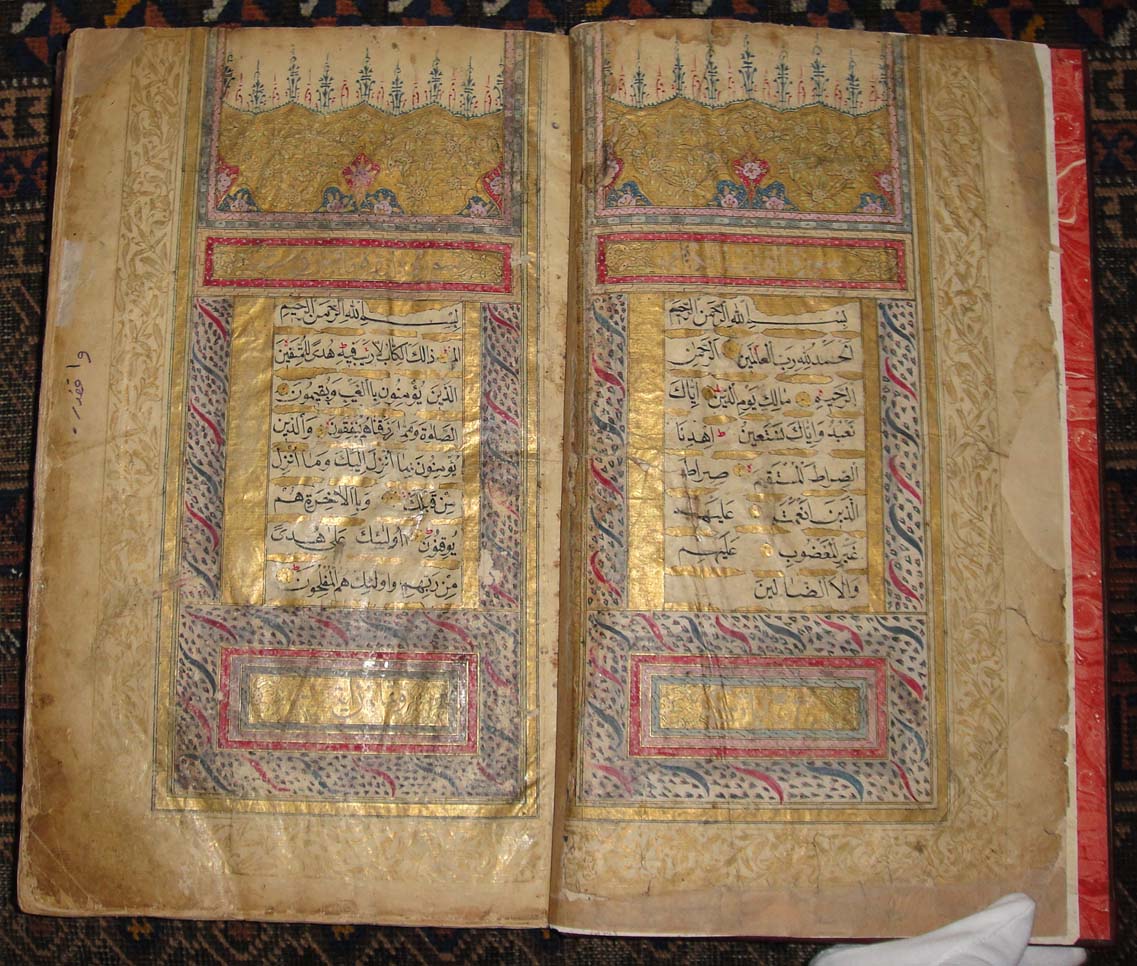 بِسْمِ اللهِ الرَّحْمنِ الرَّحِيمِ
اَلْحَمْدُ لِلّهِ رَبِّ الْعَالَمِينَ الرَّحْمنِ
الرَّحِيمِ مَالِكِ يَوْمِ الدِّينِ اِيَّاكَ
نَعْبُدُ وَاِيَّاكَ نَسْتَعِينُ اِهْدِنَا
الصِّرَاطَ الْمُسْتَقِيمَ صِرَاطَ
الَّذِينَ اَنْعَمْتَ عَلَيْهِمْ
غَيْرِ الْمَغْضُوبِ عَلَيْهِمْ
وَلَا الضَّالِّينَ
بِسْمِ اللهِ الرَّحْمنِ الرَّحِيمِ
الم ذَالِكَ الْكِتَابُ لَا رَيْبَ فِيهِ هُدًى لِلْمُتَّقِينَ
الَّذِينَ يُؤْمِنُونَ بِالْغَيْبِ وَيُقِيمُونَ
الصَّلوةَ وَمِمَّا رَزَقْنَاهُمْ يُنْفِقُونَ وَالَّذِينَ
يُؤْمِنُونَ بِمَا اُنْزِلَ اِلَيْكَ وَمَا اُنْزِلَ
مِنْ قَبْلِكَ وَبِالْاخِرَةِ هُمْ
يُوقِنُونَ اُولئِكَ عَلَى هُدًى
مِنْ رَبِّهِمْ وَاُولئِكَ هُمُ الْمُفْلِحُونَ